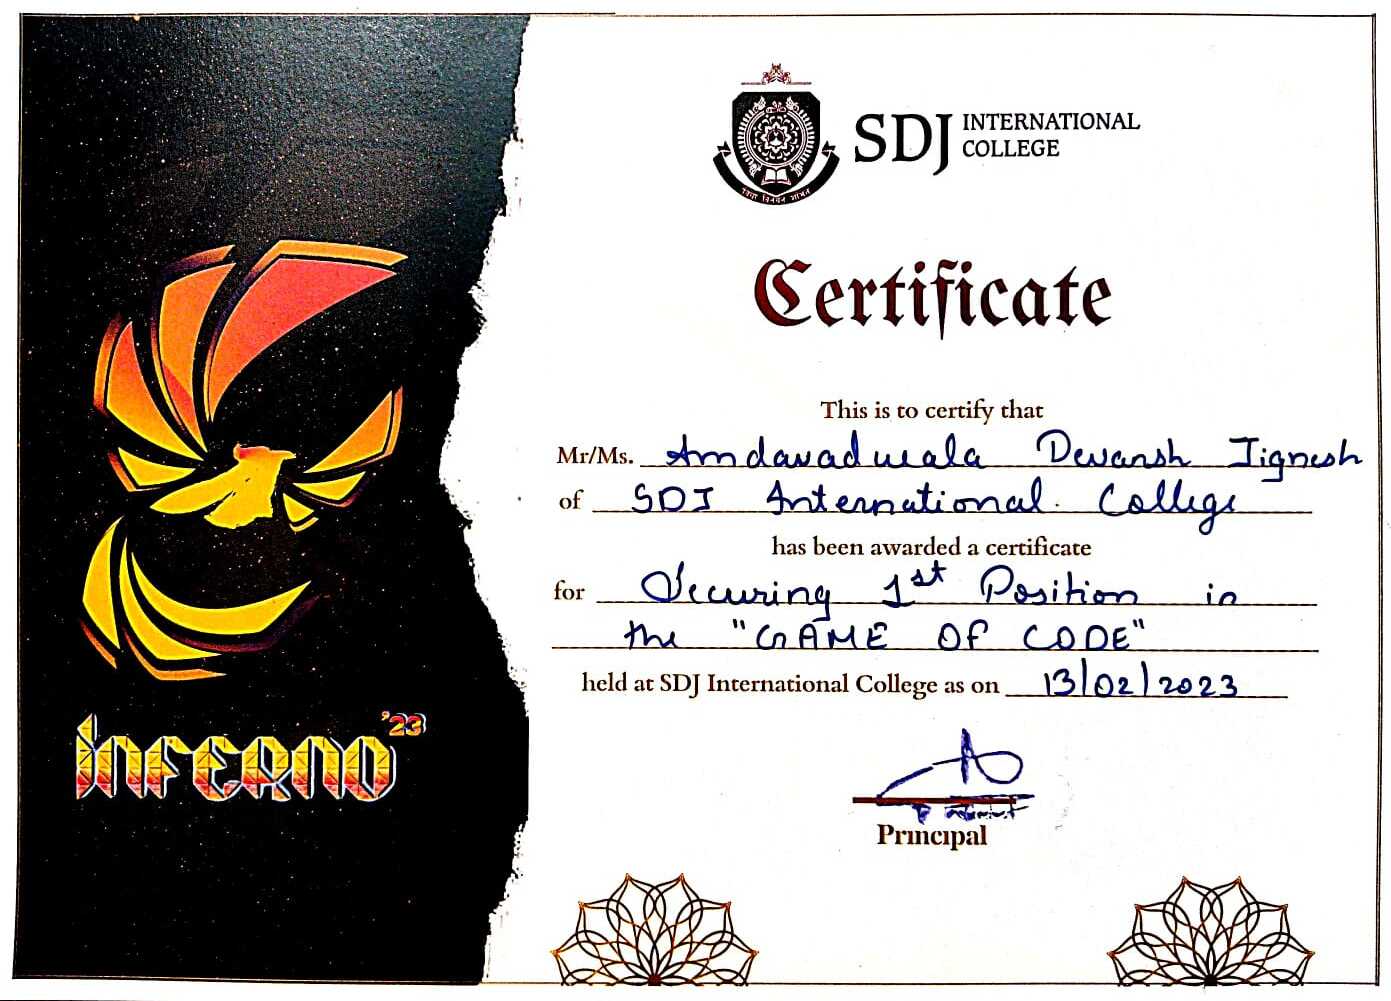 SDJ INTERNATIONAL
COLLEGE
Certificate
This is to certify that
Mr/Ms. Amdavadwala Devansh Jignesh
of SDJ International College
has been awarded a certificate
for Securing 1st Position in
the "GAME OF CODE"
held at SDJ International College as on 13/02/2023
Principal
INFERNO '23